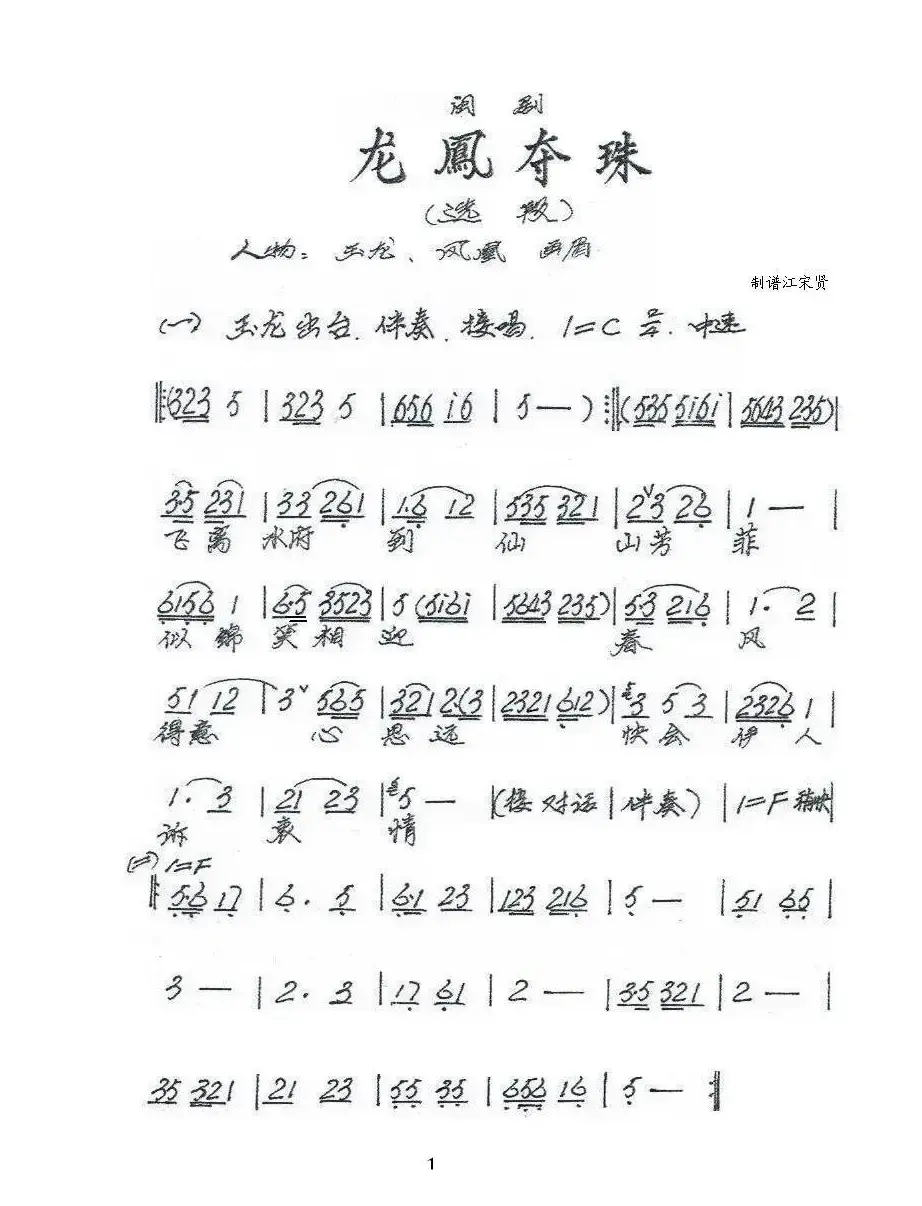 闽剧
龙鳳夺珠
(选段)
人物：玉龙、凤凰 画眉
制谱江宋贤
(一) 玉龙出台.伴奏.接唱. 1=C 2/4. 中速
‖:(323 5 | 323 5 | 656 i6 | 5 — ) :‖(535 5i6i | 5643 235)|
3·5 231 | 33 261 | 1·6 12 | 535 321 | 2ˇ3 26 | 1 — |
飞离 水府 到 仙 山芳 菲
6156 1 | 6·5 3523 | 5 (5i6i | 5643 235) | 5·3 216 | 1· 2 |
似锦 笑相 迎 春 风
51 12 | 3ˇ 565 | 321 2·(3 | 2321 612) | 3 5 3 | 2326 1 |
得意 心 思 远 快会 伊人
1· 3 | 21 23 | 5 — |(接对话 | 伴奏) | 1=F 稍快|
诉 衷 情
(二) 1=F
‖: 5·6 17 | 6· 5 | 6·1 23 | 123 216 | 5 — | 51 65 |
3 — | 2· 3 | 17 61 | 2 — | 3·5 321 | 2 — |
35 321 | 21 23 | 55 35 | 656 16 | 5 — :‖
1